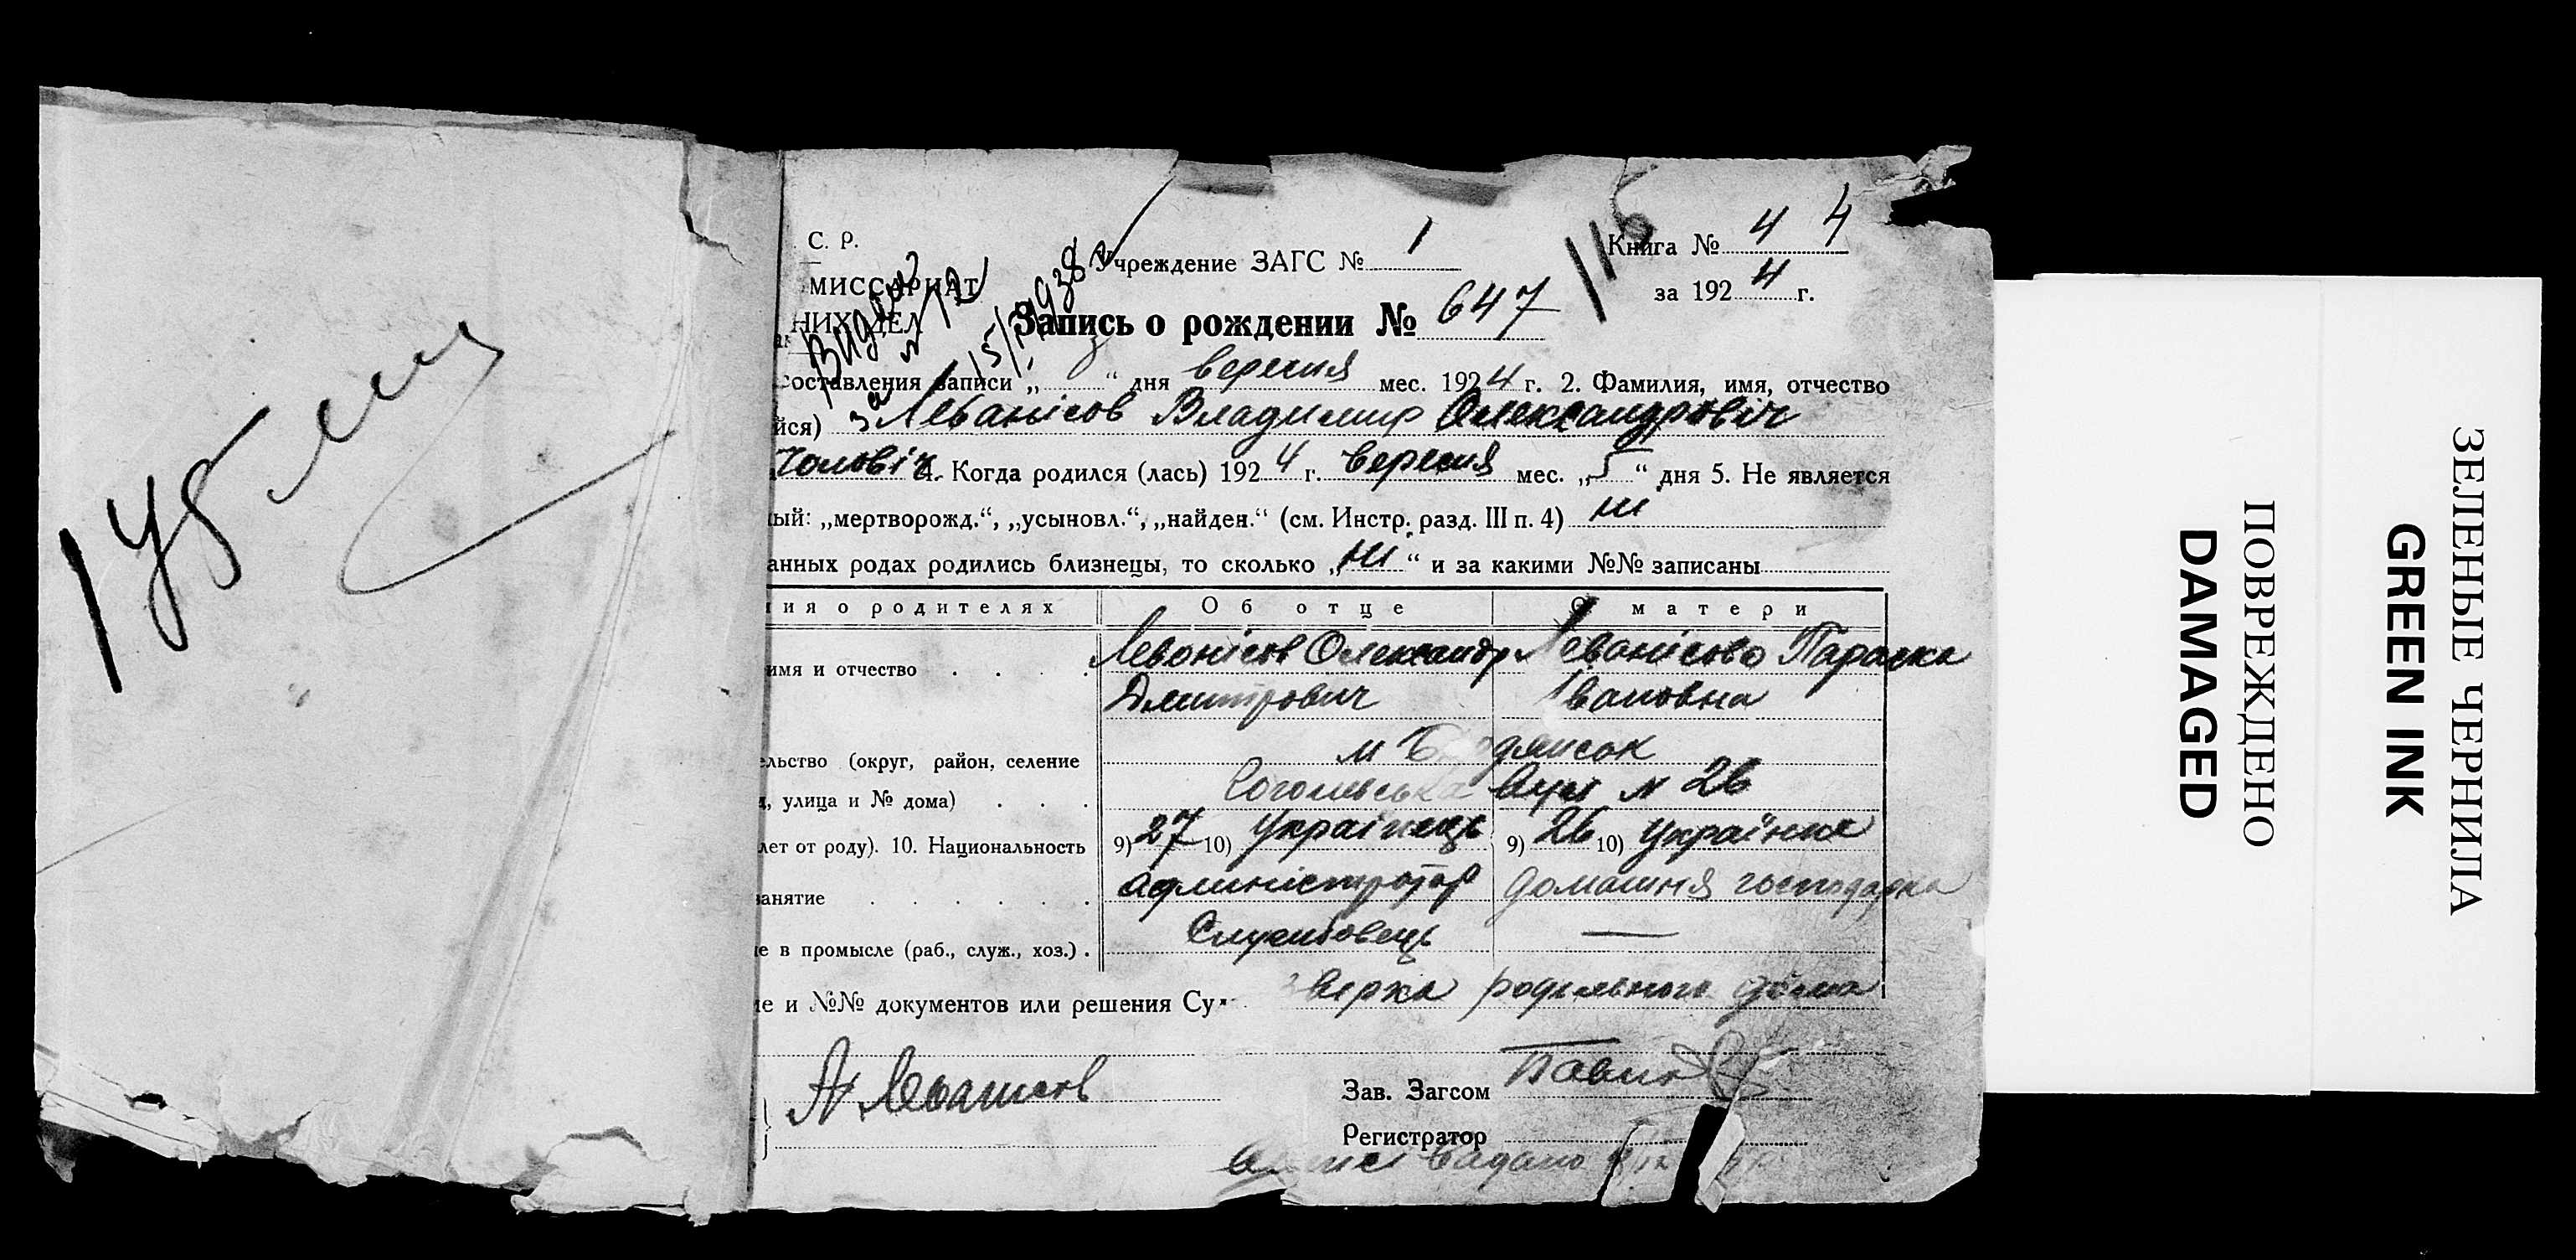 С. Р.
МИССАРИАТ
НИХ ДЕЛ
Учреждение ЗАГС № 1
Книга № 4 4
за 1924 г.
116
Запись о рождении № 647
составления записи „ “ дня вересня мес. 1924 г. 2. Фамилия, имя, отчество
йся) Леванісов Владимир Олександрович
Чоловіч 4. Когда родился (лась) 1924 г. вересня мес. „5“ дня 5. Не является
ый: „мертворожд.“, „усыновл.“, „найден.“ (см. Инстр. разд. III п. 4) ні
анных родах родились близнецы, то сколько „ні“ и за какими №№ записаны
ия о родителях Об отце О матери
имя и отчество Леванісов Олександр Леванісова Параска
Дмитрович Івановна
ельство (округ, район, селение м
, улица и № дома) Гоголевська вул N 26
лет от роду). 10. Национальность 9) 27 10) Українець 9) 26 10) Українка
занятие адміністратор домашня господарка
е в промысле (раб., служ., хоз.) Службовець —
е и №№ документов или решения Су родильного дома
Зав. Загсом
Регистратор
ЗЕЛЕНЫЕ ЧЕРНИЛА
GREEN INK
ПОВРЕЖДЕНО
DAMAGED